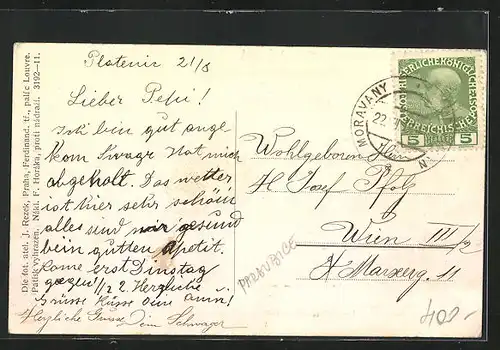 Platenic 21/8
Lieber Pepi!
Ich bin gut ange-
kom Swagr Hat mich
abgeholt. Das wetter
ist hier sehr schön
alles sind wir gesund
bein gutten Apetit.
Kome erst Dinstag
gegen 1/2 2. Herzliche
Grüsse Küsse deine Anni!
Herzliche Grüsse Dein Schwager
Die fot. atel. J. Rezek, Praha, Ferdinand. tř., palác Louvre.
Patisk vyhrazen. Nákl. F. Horáka, proti nádraží. 3192—11.
MORAVANY
22.
5 5
Wohlgeboren Herrn
H Josef Pfolz
Wien III/2
H Marxerg. 11
PŘELOUČE
400-